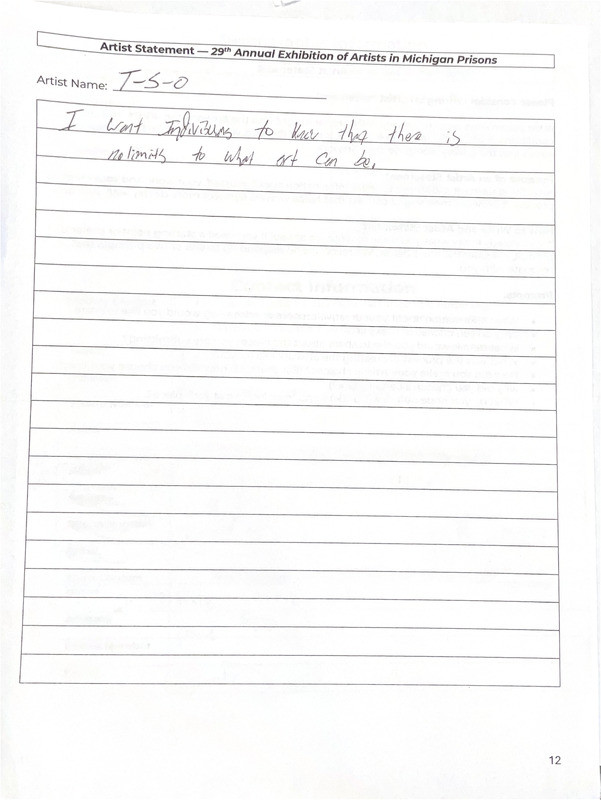 Artist Statement — 29th Annual Exhibition of Artists in Michigan Prisons
Artist Name: T-S-O
I want Individuals to know that there is
no limits to what art can be.
12